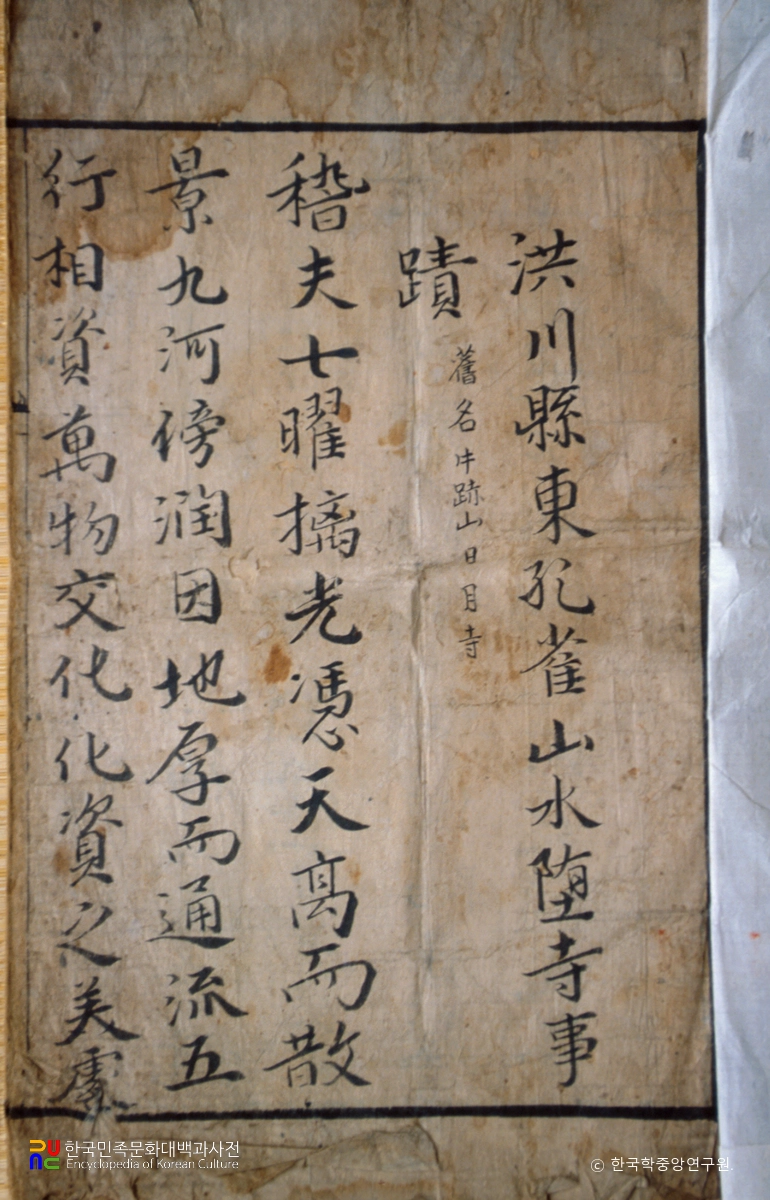 洪川縣東孔雀山水墮寺事
蹟
舊名牛跡山日月寺
稽夫七曜摛光憑天高而散
景九河傍潤因地厚而通流五
行相資萬物交化化資之美
한국민족문화대백과사전
Encyclopedia of Korean Culture
© 한국학중앙연구원.